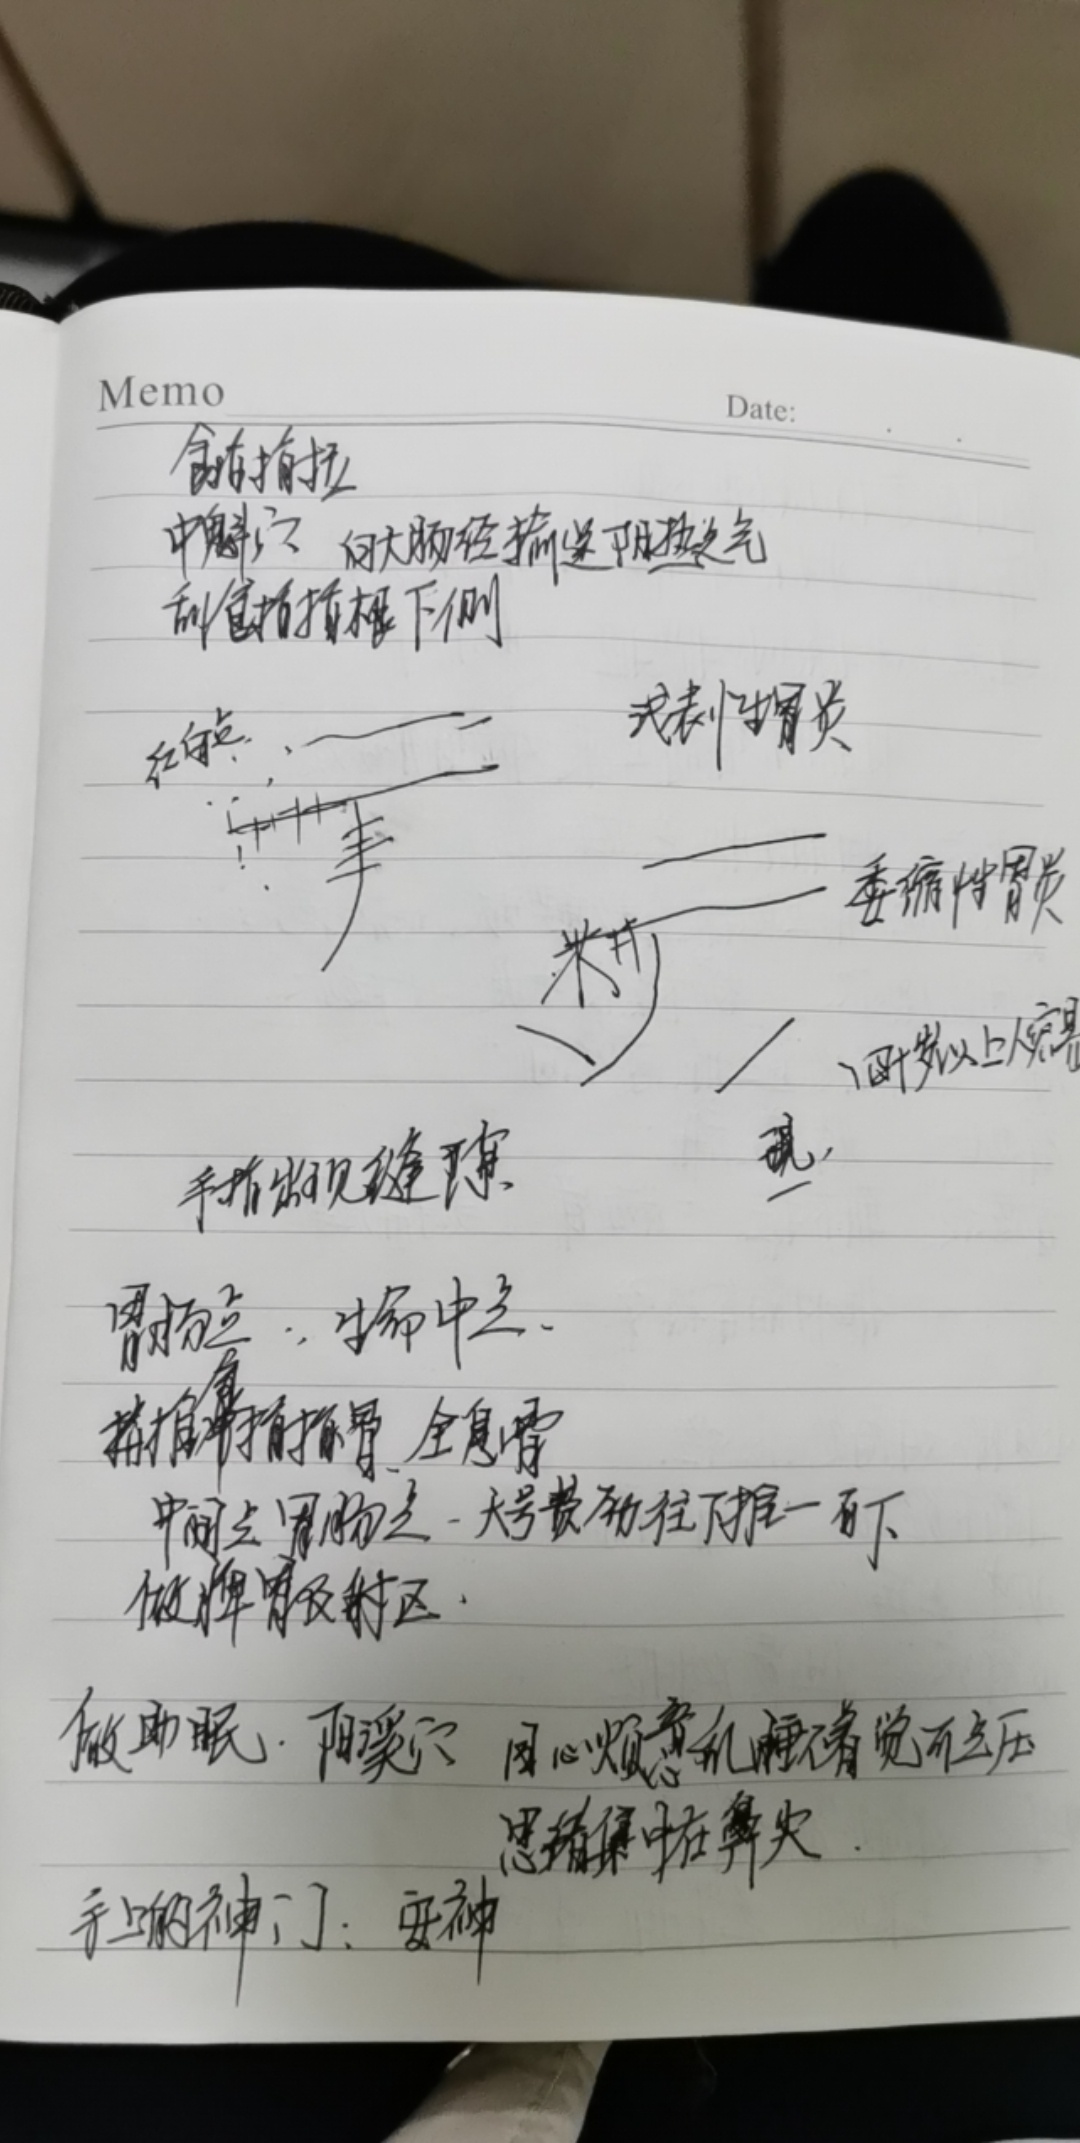 Memo
Date:
食指指抚
中魁穴 向大肠经输送阳热之气
刮食指指根下侧
红白点
浅表性胃炎
萎缩性胃炎
四十岁以上人容易
现
手指出现缝隙
胃肠点 生命中点
食
指指骨 全息骨
中间点胃肠点 大号费劲往下推一百下
做脾胃反射区
做助眠 阳溪穴 因心烦意乱睡不着觉可点压
思绪集中在鼻尖
手上的神门: 安神